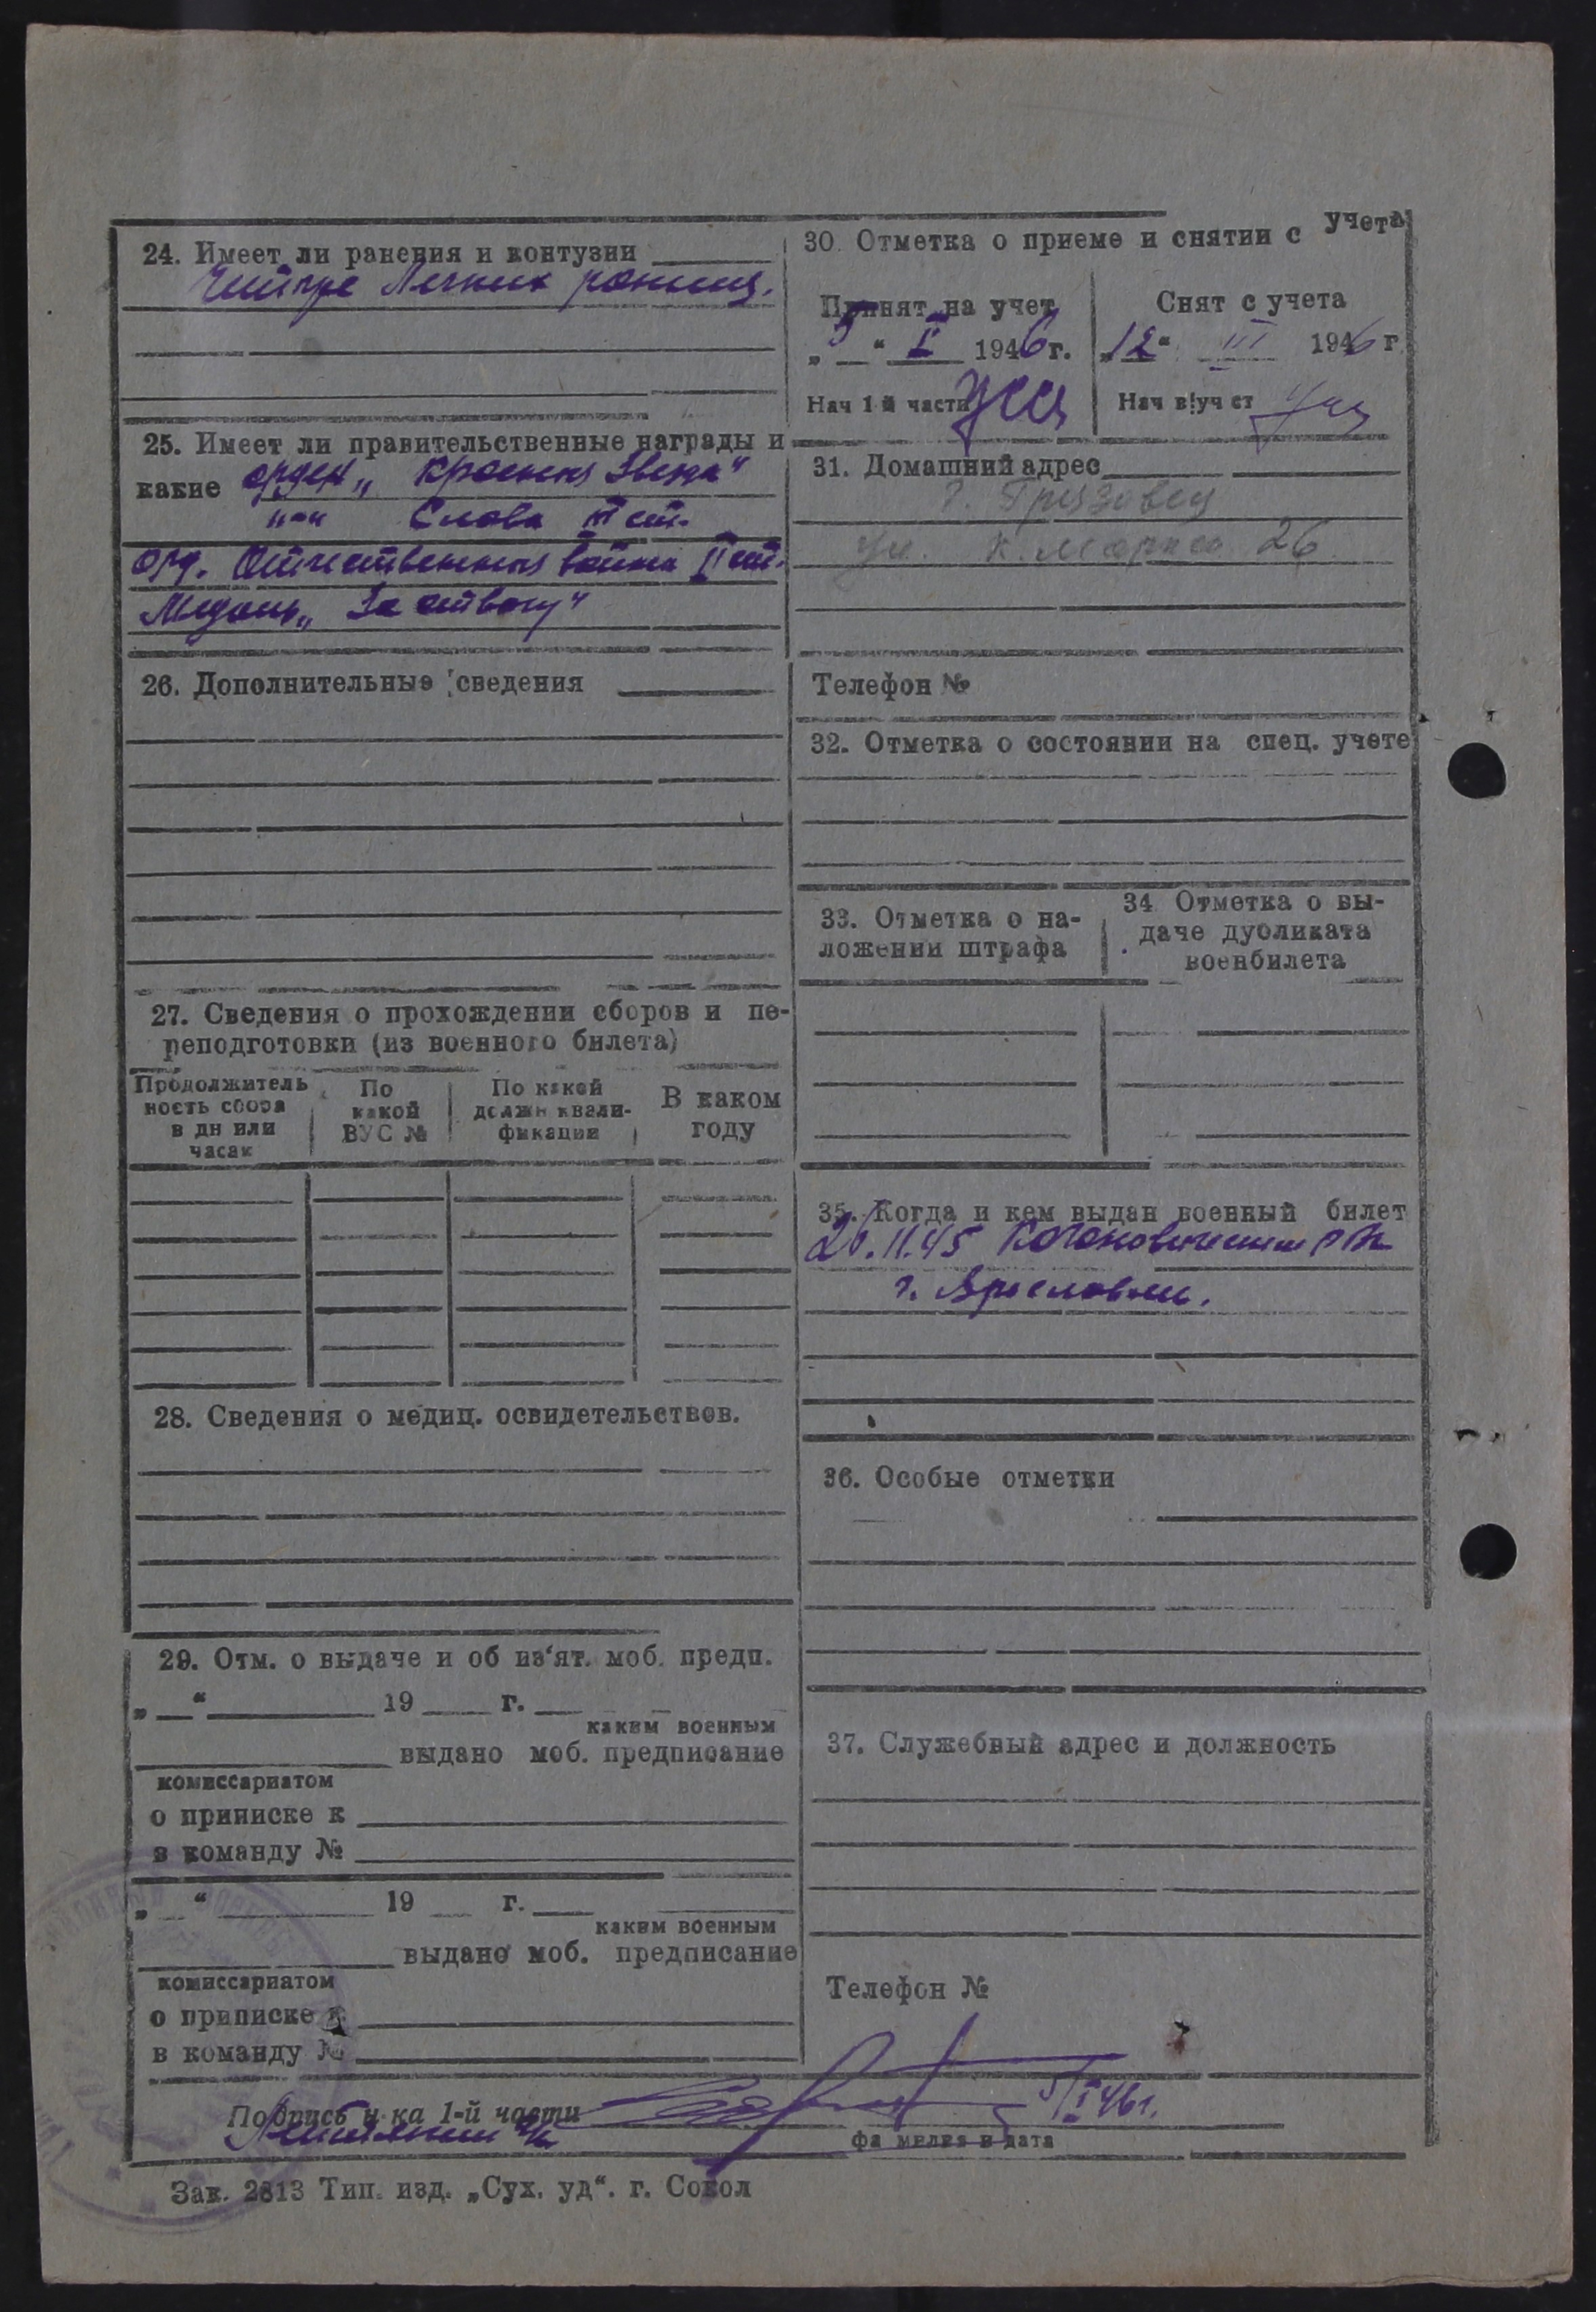 24. Имеет ли ранения и контузии
Четыре легких ранения.
25. Имеет ли правительственные награды и
какие орден „Красная Звезда"
"—" Слава III ст.
Орд. Отечественная война II ст.
Медаль „За отвагу"
26. Дополнительные сведения
27. Сведения о прохождении сборов и пе-
реподготовки (из военного билета)
Продолжитель
ность сбора
в дн или
часах
По
какой
ВУС №
По какой
должн квали-
фикации
В каком
году
28. Сведения о медиц. освидетельствов.
29. Отм. о выдаче и об из‘ят. моб. предп.
„ “ 19 г.
каким военным
выдано моб. предписание
комиссариатом
о приписке к
в команду №
„ “ 19 г.
каким военным
выдано моб. предписание
комиссариатом
о приписке к
в команду №
30. Отметка о приеме и снятии с учета
Принят на учет
„5“ I 1946 г.
Нач 1 й части
Снят с учета
„12“ III 1946 г.
Нач в/уч ст
31. Домашний адрес
г. Грязовец
ул. К. Маркса 26
Телефон №
32. Отметка о состоянии на спец. учете
33. Отметка о на-
ложении штрафа
34 Отметка о вы-
даче дубликата
военбилета
35. Когда и кем выдан военный билет
26.11.45 Кагановическим РВК
г. Ярославль.
36. Особые отметки
37. Служебный адрес и должность
Телефон №
Подпись н-ка 1-й части
5/I 46г.
фамилия и дата
Зак. 2813 Тип. изд. „Сух. уд“. г. Сокол